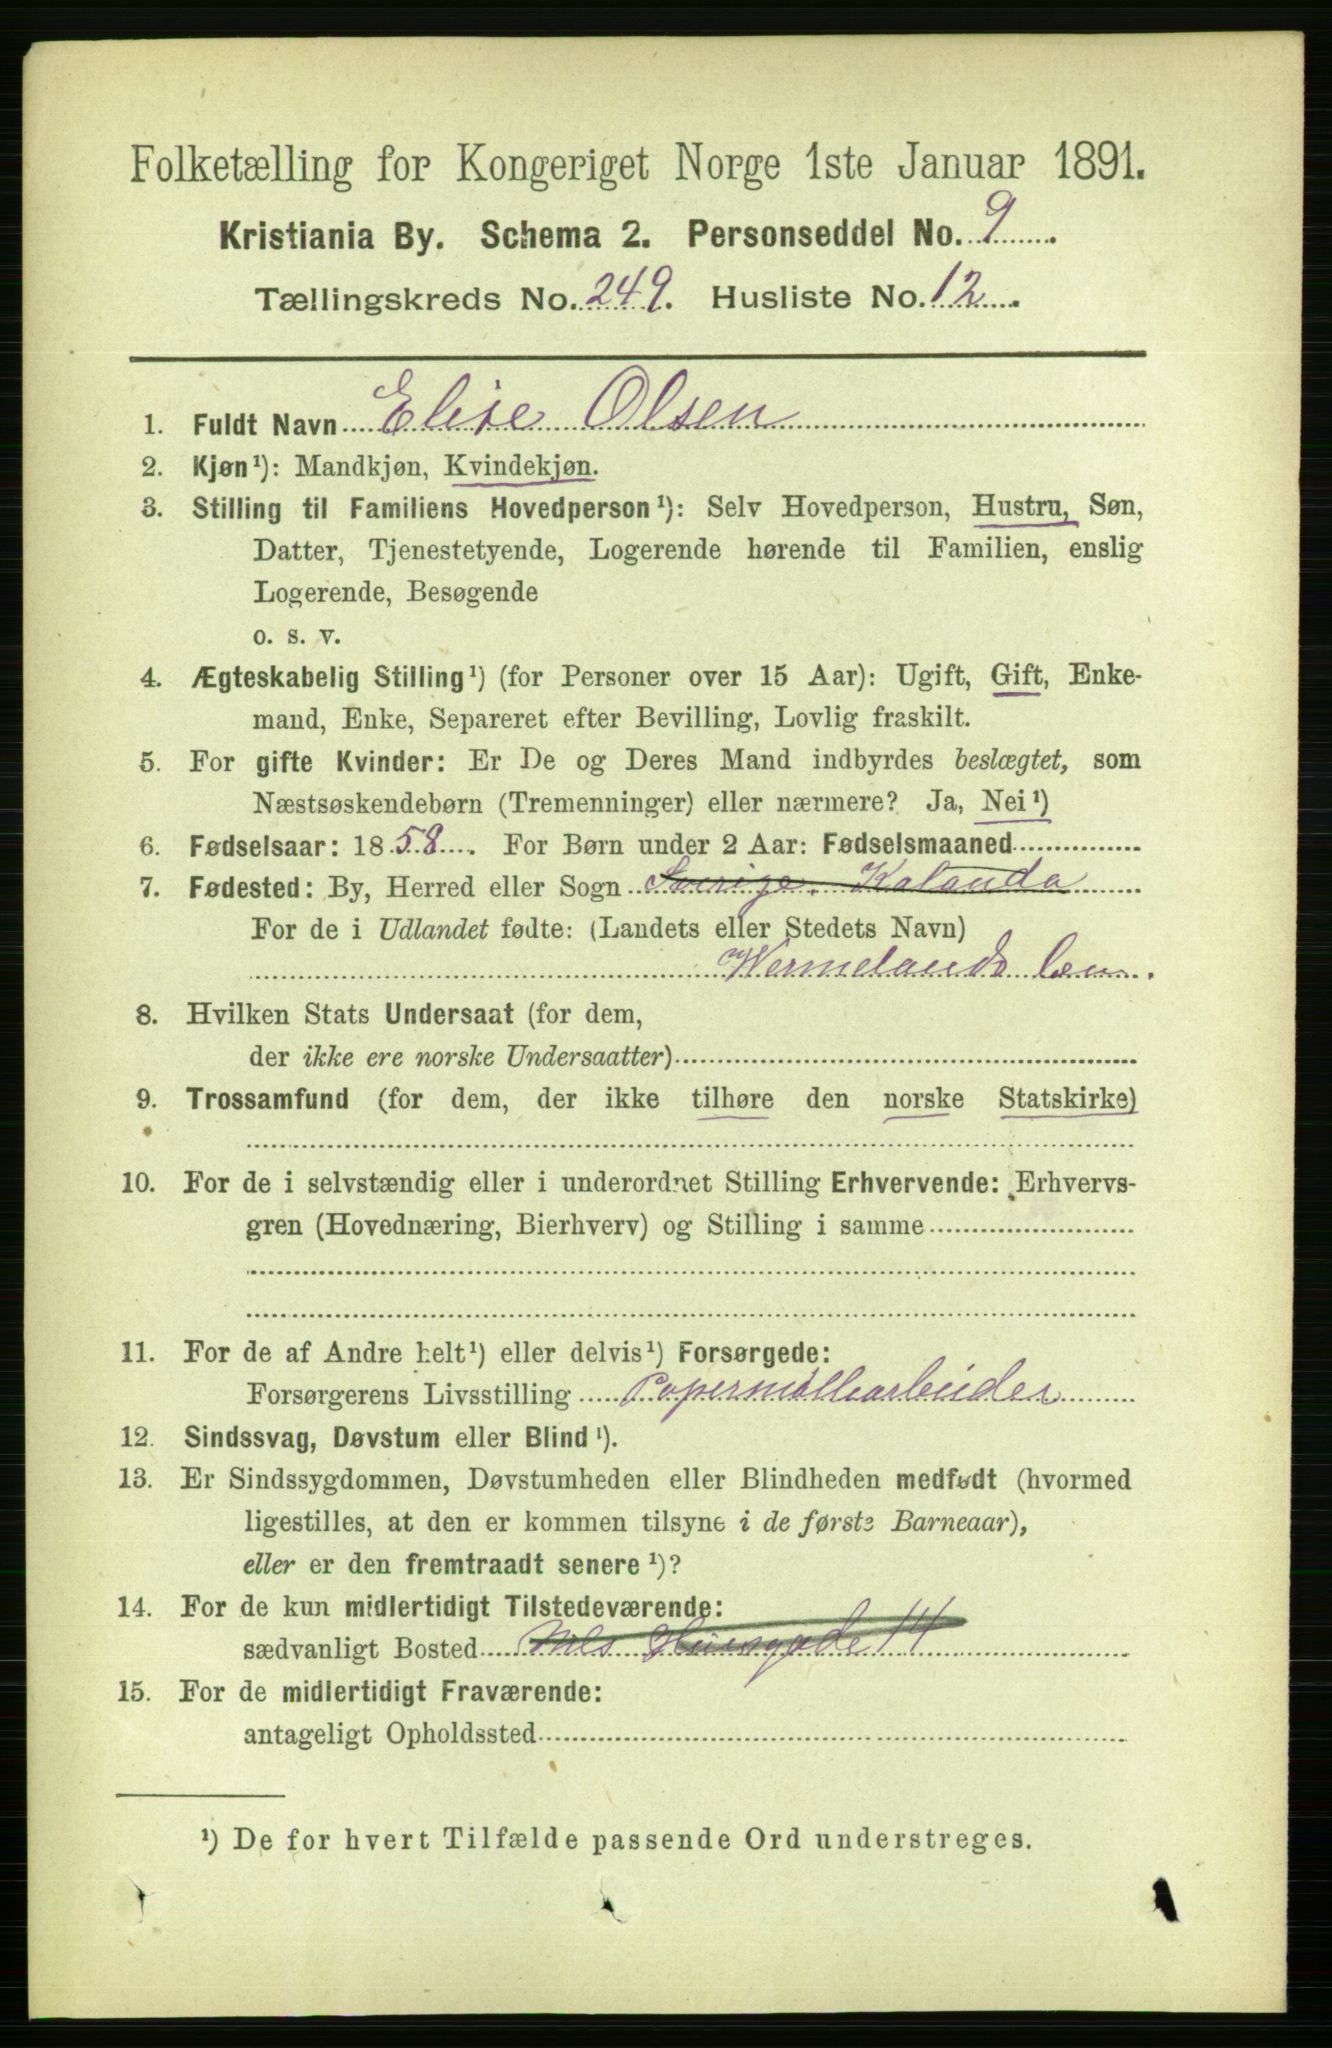 Folketælling for Kongeriget Norge 1ste Januar 1891.
Kristiania By. Schema 2. Personseddel No. 9.
Tællingskreds No. 249. Husliste No. 12.
1. Fuldt Navn Elise Olsen
2. Kjøn¹): Mandkjøn, Kvindekjøn.
3. Stilling til Familiens Hovedperson¹): Selv Hovedperson, Hustru, Søn,
Datter, Tjenestetyende, Logerende hørende til Familien, enslig
Logerende, Besøgende
o. s. v.
4. Ægteskabelig Stilling¹) (for Personer over 15 Aar): Ugift, Gift, Enke-
mand, Enke, Separeret efter Bevilling, Lovlig fraskilt.
5. For gifte Kvinder: Er De og Deres Mand indbyrdes beslægtet, som
Næstsøskendebørn (Tremenninger) eller nærmere? Ja, Nei¹)
6. Fødselsaar: 1858. For Børn under 2 Aar: Fødselsmaaned
7. Fødested: By, Herred eller Sogn Sverige. Kalanda
For de i Udlandet fødte: (Landets eller Stedets Navn)
Wermelands len.
8. Hvilken Stats Undersaat (for dem,
der ikke ere norske Undersaatter)
9. Trossamfund (for dem, der ikke tilhøre den norske Statskirke)
10. For de i selvstændig eller i underordnet Stilling Erhvervende: Erhvervs-
gren (Hovednæring, Bierhverv) og Stilling i samme
11. For de af Andre helt¹) eller delvis¹) Forsørgede:
Forsørgerens Livsstilling Papermøllearbeider
12. Sindssvag, Døvstum eller Blind¹).
13. Er Sindssygdommen, Døvstumheden eller Blindheden medfødt (hvormed
ligestilles, at den er kommen tilsyne i de første Barneaar),
eller er den fremtraadt senere¹)?
14. For de kun midlertidigt Tilstedeværende:
sædvanligt Bosted Nils Huusgade 14
15. For de midlertidigt Fraværende:
antageligt Opholdssted
¹) De for hvert Tilfælde passende Ord understreges.